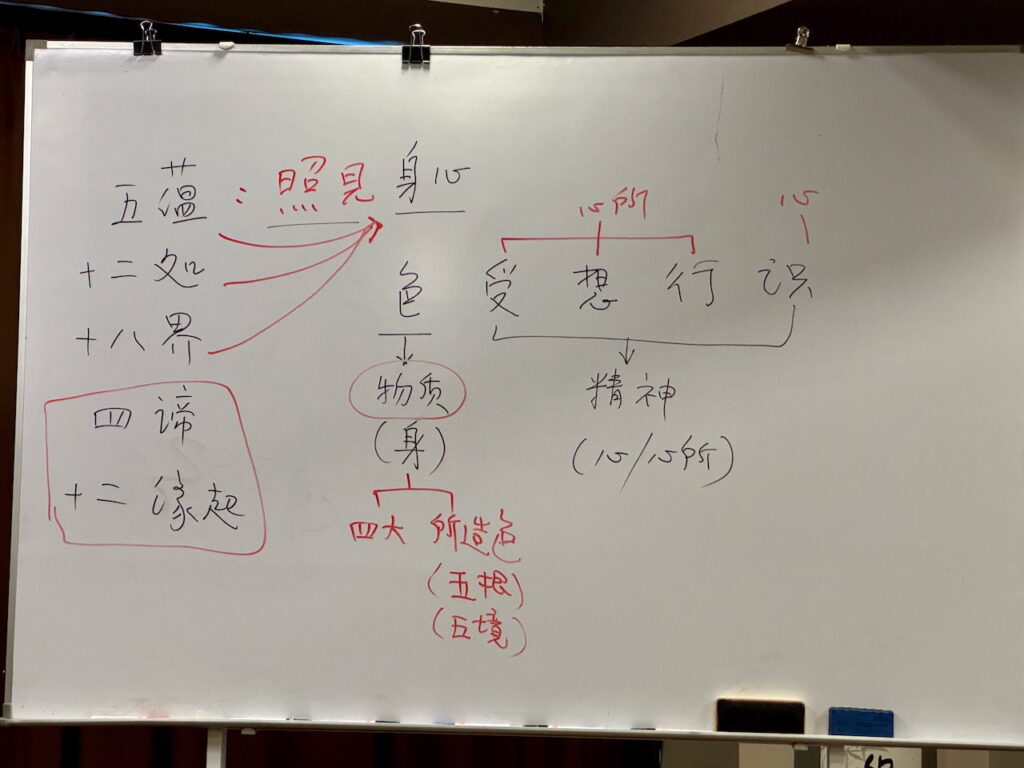 五蕴：照見身心
十二処
十八界
四谛
十二缘起
心所
心
色受想行识
物质
(身)
精神
(心/心所)
四大 所造色
(五根)
(五境)